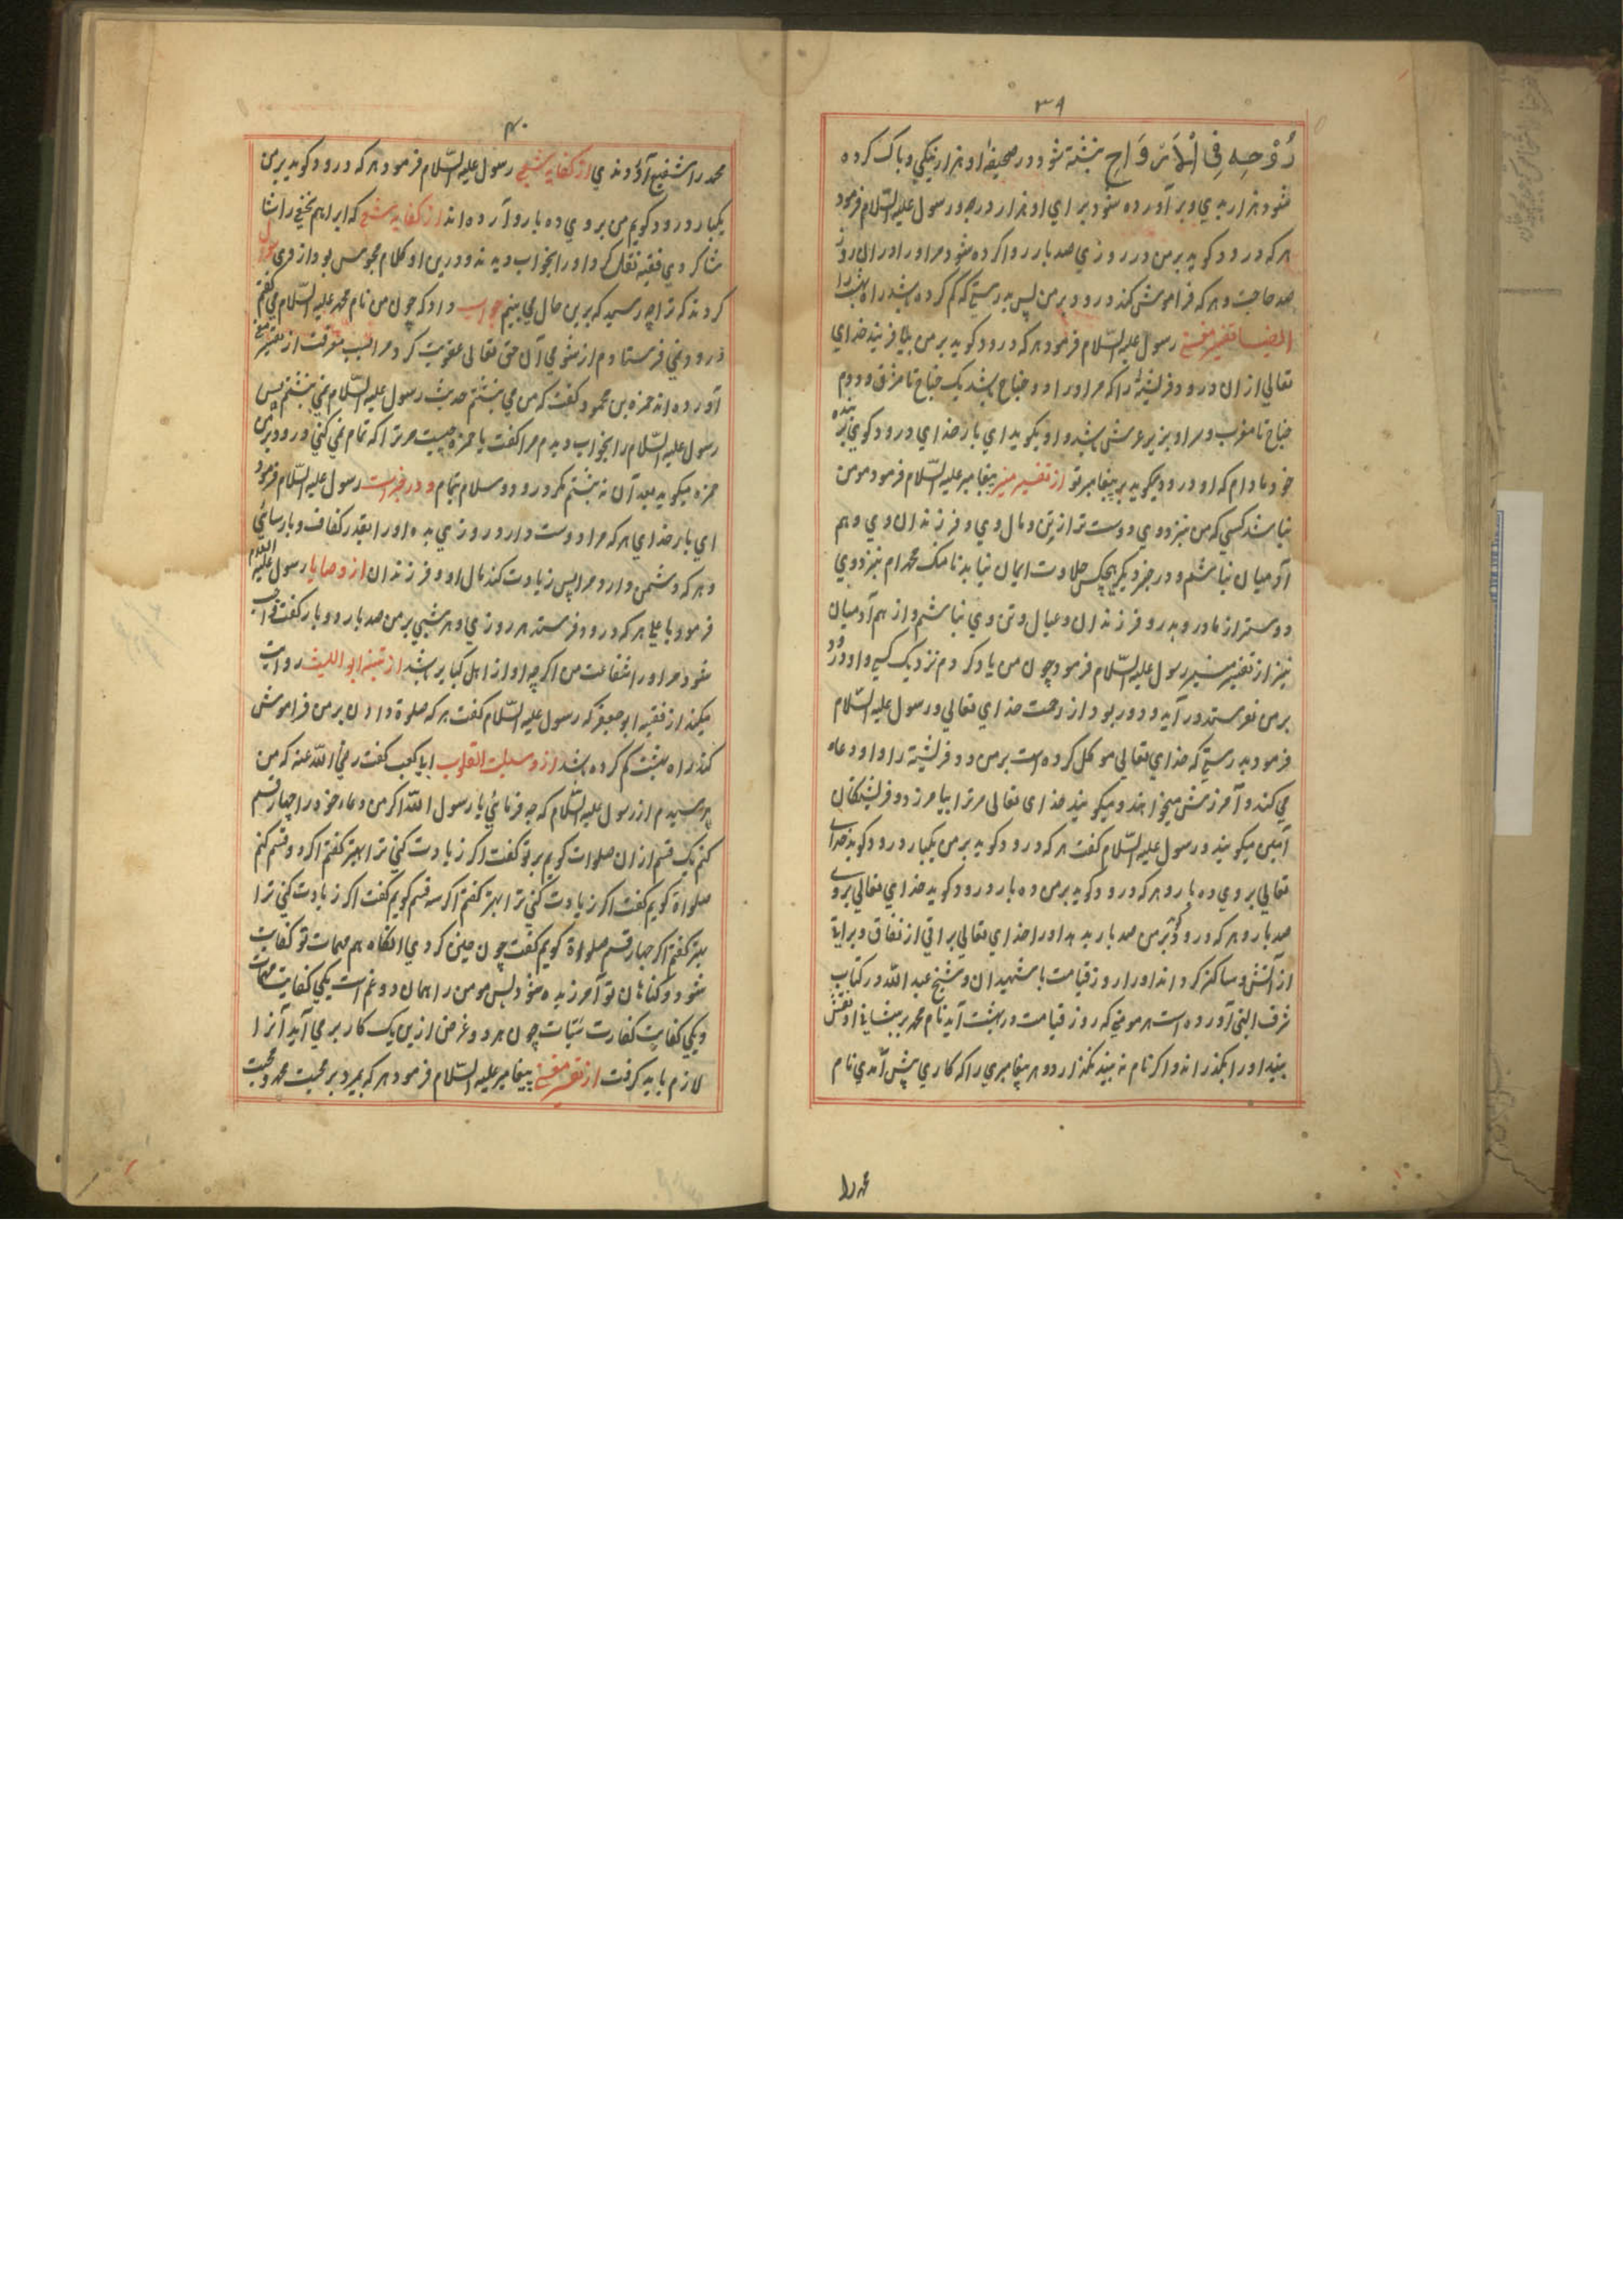 ۳۹
رُوْحِهِ فِي الْاَرْوَاحِ نبشته شود در صحیفهٔ او هزار نیکی و پاک کرده
شود هزار بدی و بر آورده شود برای او هزار درجه و رسول علیه السّلام فرمود
هر که درود کوید بر من در روزی صد بار روا کرده شود مر او را در ان روز
صد حاجت و هر که فراموش کند درود بر من پس بدرستی که کم کرده باشد راه بهشت را
ایضا تفسیر مغنی رسول علیه السّلام فرمود هر که درود کوید بر من بیافریند خدای
تعالی از ان درود فرشتهٔ را که مر او را دو جناح باشد یک جناح تا مشرق و دوم
جناح تا مغرب و سر او بزیر عرش باشد و او بکوید ای بار خدای درود کوی بر بنده
خود مادام که او درود میکوید بر پیغامبر تو از تفسیر منیر پیغامبر علیه السّلام فرمود مومن
نباشد کسی که من بنزد وی دوست تر از تن و مال وی و فرزندان وی و هم
آدمیان نباشم و در خبر دیکر هیچکس حلاوت ایمان نیابد تا منکه محمدام بنزد وی
دوستر از مادر و پدر و فرزندان و عیال و تن وی نباشم و از هم آدمیان
نیز از تفسیر منیر رسول علیه السّلام فرمود چون من یاد کردم نزدیک کسی و او درود
بر من نفرستد در آید و دور بود از رحمت خدای تعالی و رسول علیه السّلام
فرمود بدرستی که خدای تعالی موکل کرده است بر من دو فرشته را و او دعا
می کند و آمرزش میخواهند و میکویند خدای تعالی مر ترا بیامرزد و فرشتکان
آمین میکویند و رسول علیه السّلام کفت هر که درود کوید بر من یکبار درود کوید خدای
تعالی بر وی ده بار و هر که درود کوید بر من ده بار درود کوید خدای تعالی بر وی
صد بار و هر که درود کوید بر من صد بار بدهد او را خدای تعالی براتی از نفاق و براتی
از آتش و ساکن کرداند او را روز قیامت با شهیدان و شیخ عبد الله در کتاب
شرف النبی آورده است هر مومنی که روز قیامت در بهشت آید نام محمد بر پیشانی او نقش
بیند او را بکذراند و اکر نام نه بیند نکذارد و هر پیغامبری را که کاری پیش آمدی نام
محمد را
۴۰
محمد را شفیع آوردندی از کفایه شعبی رسول علیه السّلام فرمود هر که درود کوید بر من
یکبار درود کویم من بر وی ده بار و آورده اند از کفایه شعبی که ابراهیم نخعی را شا
شاکردی فقیه نقل کرد او را بخواب دیدند و در بن او کلام مجوس بود از وی سوال
کردند که ترا چه رسید که برین حال می بینیم جواب داد که چون من نام محمد علیه السّلام می کفتم
درود نمی فرستادم از شومی آن حق تعالی عقوبت کرد مرا بسلب معرفت از تفسیر مغنی
آورده اند حمزه بن محمود کفت که من می نبشتم حدیث رسول علیه السّلام نمی نبشتم پس
رسول علیه السّلام را بخواب دیدم مرا کفت یا حمزه چیست مر ترا که تمام نمی کنی درود بر من
حمزه میکوید بعد آن نه نبشتم مکر درود و سلام بتمام و در خبر است رسول علیه السّلام فرمود
ای بار خدای هر که مرا دوست دارد روزی بده او را بقدر کفاف و پارسائی
و هر که دشمن دارد مرا پس زیادت کند مال او و فرزندان از وصایا رسول علیه السلام
فرمود یا علی هر که درود فرستد هر روزی و هر شبی بر من صد بار و دو بار کفت واجب
شود مر او را شفاعت من اکرچه او از اهل کبایر باشد از تنبیه ابو اللیث روایت
میکند از فقیه ابو جعفر که رسول علیه السّلام کفت هر که صلوة دادن بر من فراموش
کند راه بهشت کم کرده باشد از وسیلت القلوب ابا کعب کفت رضی الله عنه که من
پرسیدم از رسول علیه السّلام که چه فرمائی یا رسول الله اکر من دعاء خود را چهار قسم
کنم یک قسم از ان صلوات کویم بر تو کفت اکر زیادت کنی ترا بهتر کفتم اکر دو قسم کنم
صلواة کویم کفت اکر زیادت کنی ترا بهتر کفتم اکر سه قسم کویم کفت اکر زیادت کنی ترا
بهتر کفتم اکر چهار قسم صلواة کویم کفت چون چنین کردی انکاه هم مهمات تو کفایت
شود و کناهان تو آمرزیده شود پس مومن را همان دو غم است یکی کفایت مهمات
و یکی کفایت کفارت سیّات چون هر دو غرض ازین یک کار بر می آید آنرا
لازم باید کرفت از تفسیر مغنی پیغامبر علیه السّلام فرمود هر که بمیرد بر محبت محمد و محبت